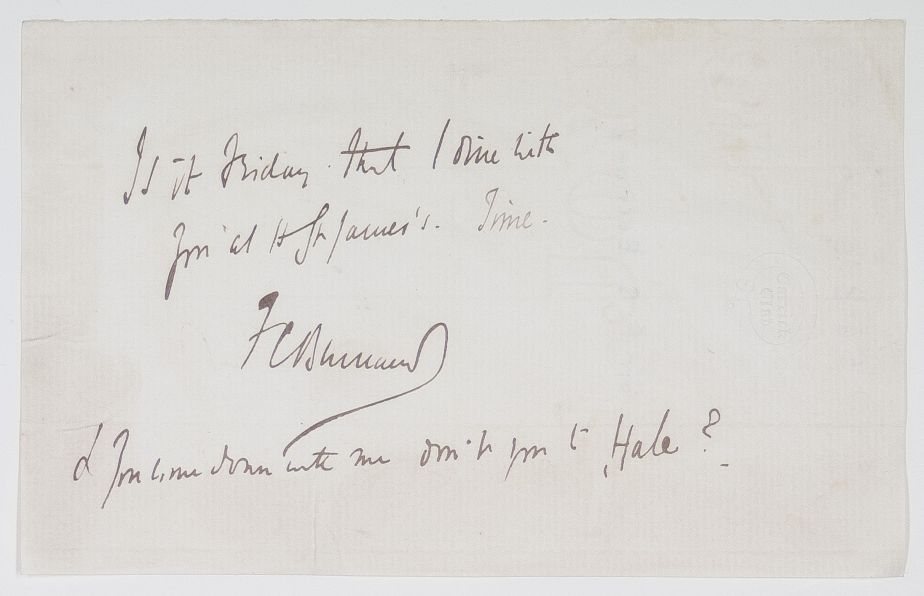 Is it Friday that I dine with
you at H St James's. Time.
F C Burnand
& you come down with me don't you to Hale?
Garrick
Club